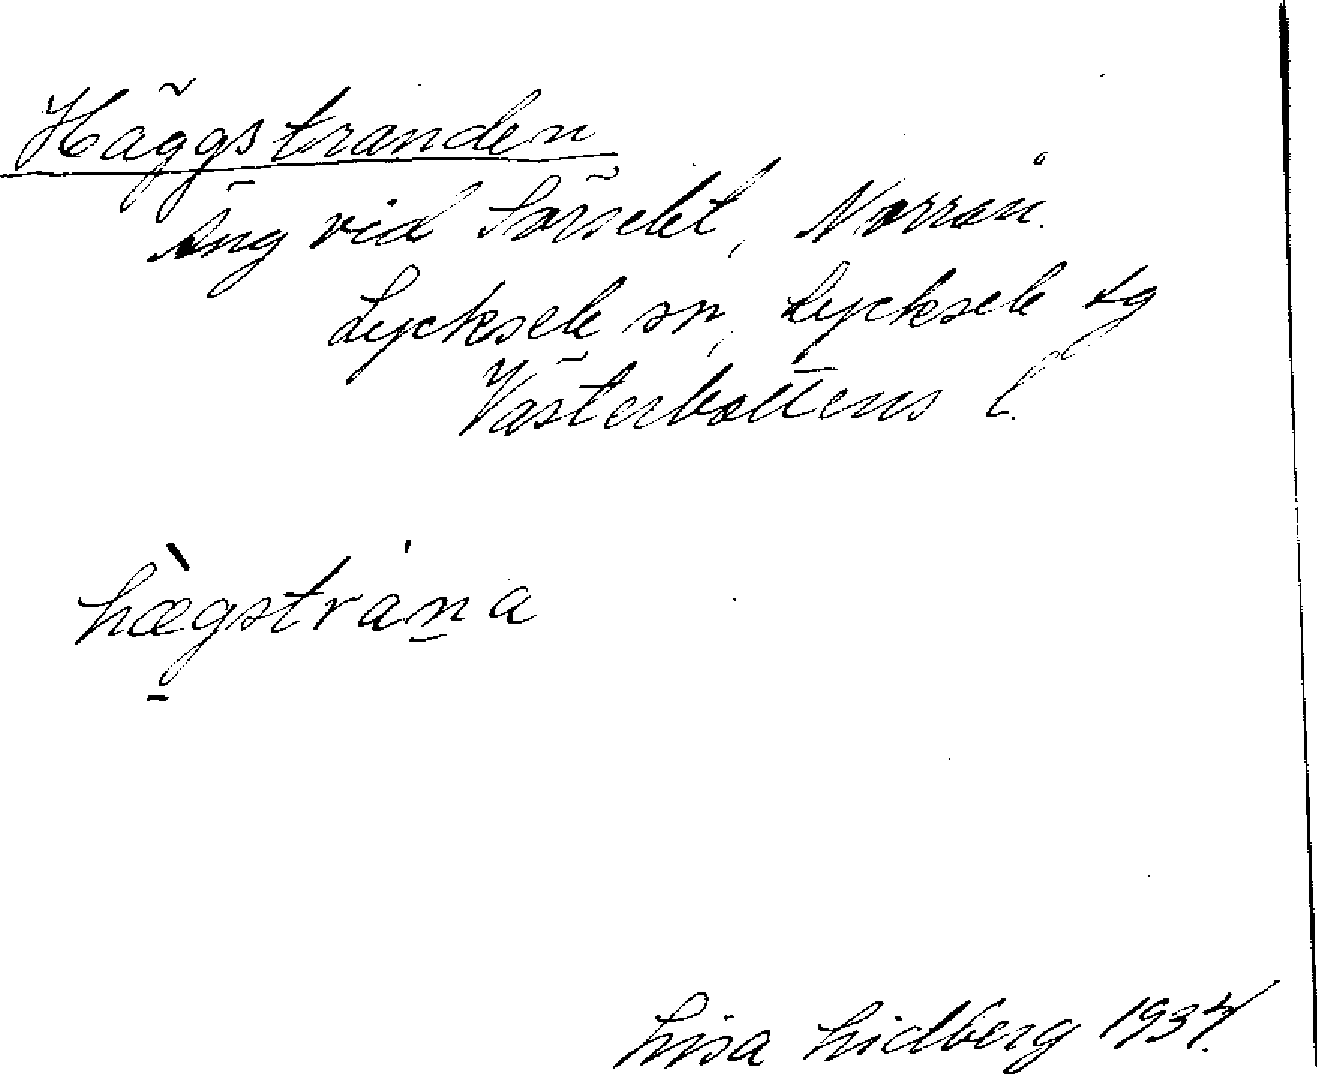 Häggstranden
Äng vid Sörselet, Norrån.
Lycksele sn, Lycksele lg
Västerbottens l.
hæ̀gstràn̲a
Lisa Lidberg